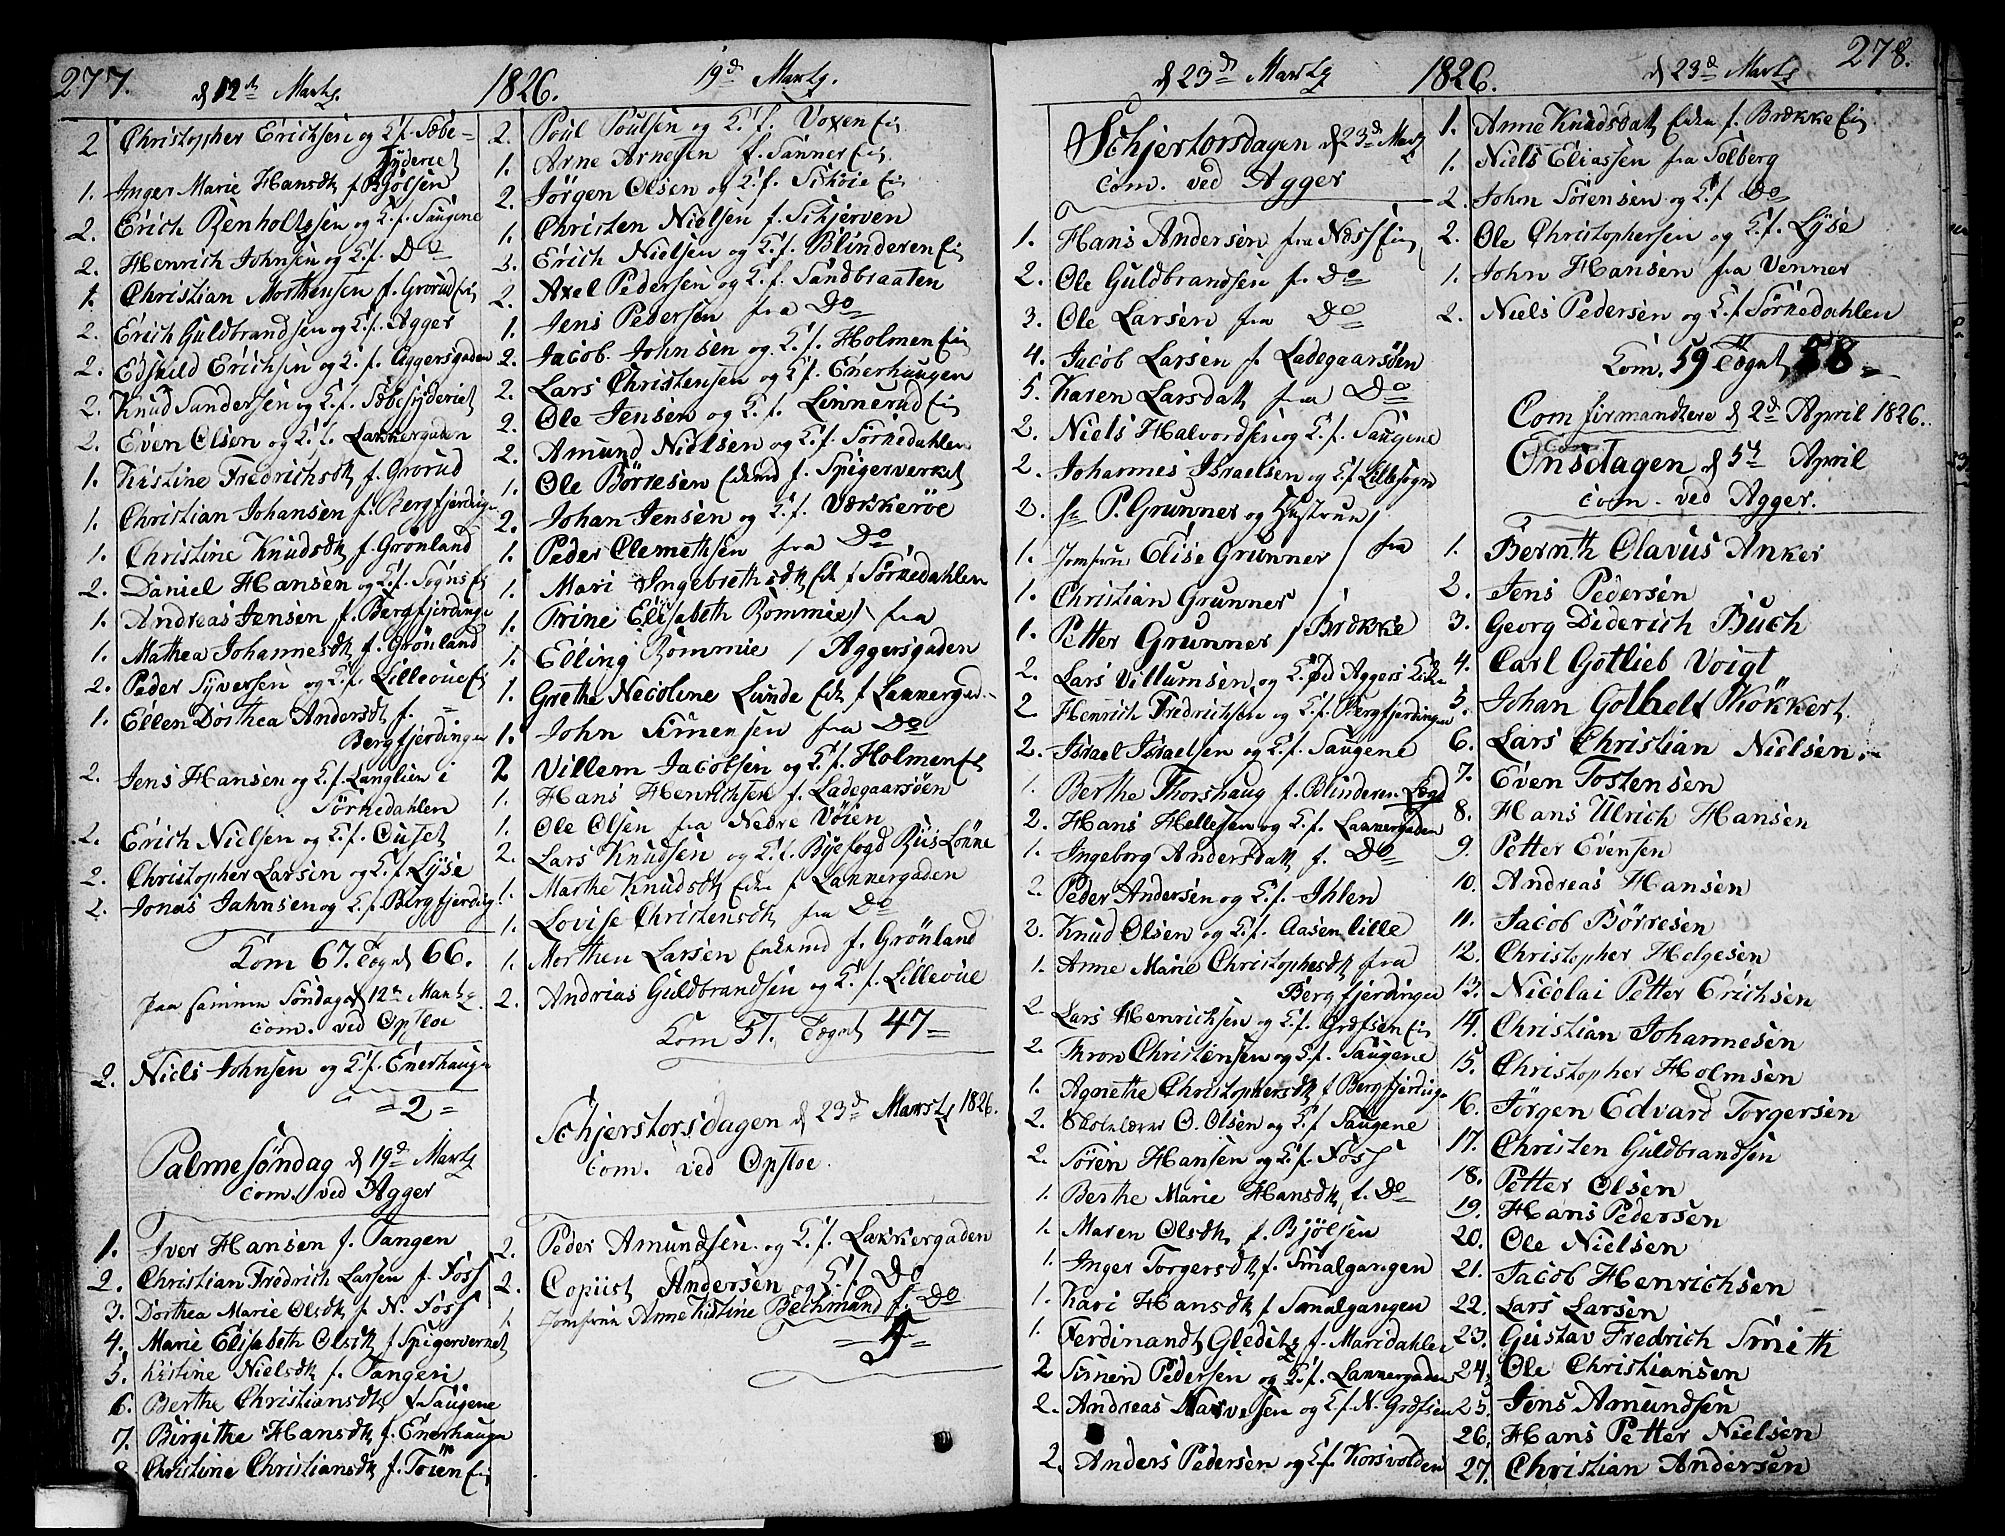 277.
d 12te Martz.
1826.
19d Martz.
2 Christopher Erichsen og K. f. Sæbe-
Syderiet
1. Inger Marie Hansdtr f Bjølsen
2. Erich Renholtssen og K. f. Saugene
2. Henrich Johnsen og K. f. Do
1. Christian Morthensen f. Grorud Ei
2. Erich Guldbrandsen og K. f. Agger
2. Edskild Erichsen og K. f. Aggersgaden
2. Knud Sandersen og K. f. Sæbesyderiet
2. Even Olsen og K. f. Lakkergaden
1. Kistine Fredrichsdtr f. Grorud
1. Christian Johansen f. Bergfjerdinge
1. Christine Knudsdtr f. Grønland
2. Daniel Hansen og K. f. Sogns Ei
1. Andreas Jensen f. Bergfjerdinge
1. Mathea Johannesdtr f. Grønland
2. Peder Syversen og K. f. Lilleoue Ei
1. Ellen Dorthea Andersdtr f. =
Bergfjerdingen
2. Jens Hansen og K. f. Langlien i
Sørkedahlen
2. Erich Nielsen og K. f. Ouset
2. Christopher Larsen og K. f. Lyse
2. Jonas Jahnsen og K. f. Bergfjerding
Kom 67. Tegnet 66.
paa samme Søndag d 12te Martz.
com. ved Opsloe
2. Niels Johnsen og K. f. Enerhauge
= 2 =
Palmesøndag d 19d Martz
com. ved Agger
1. Iver Hansen f. Tangen
2. Christian Fredrich Larsen f. Foss
3. Dorthea Marie Olsdtr f N. Foss
4. Marie Elisabeth Olsdtr f Spigerverket
5. Kistine Nielsdtr f. Tangen
6. Berthe Christiansdtr f Saugene
7. Birgithe Hansdtr f. Enerhauge
8 Christine Christiansdtr f. Tøien Ei
2. Poul Poulsen og K. f. Voxen Ei
1. Arne Arnesen f. Sanner Ei
2. Jørgen Olsen og K. f. Skøie Ei
1. Christen Nielsen f. Schjerven
2. Erich Nielsen og K. f. Blinderen Ei
2. Axel Pedersen og K. f. Sandbraaten
1. Jens Pedersen fra Do
2. Jacob Johnsen og K. f. Holmen Ei
2. Lars Christensen og K f. Enerhaugen
2. Ole Jensen og K. f. Linnerud Ei
2. Amund Nielsen og K. f. Sørkedahlen
1. Ole Børresen Enkmd f. Spigerverket
2. Johan Jensen og K. f. Vækkerøe
1. Peder Clemethsen fra Do
1. Mari Ingebrethsdtr Ek f Sørkedahlen
1. Trine Elisabeth Bommie / fra
1. Elling Bommie / Aggersgaden
1. Grethe Necoline Lunde Ek f Lakkergad-
1. John Simensen fra Do
2 Villem Jacobsen og K. f. Holmen Ei
1. Hans Henrichsen f. Ladegaarsøen
1. Ole Olsen fra Nedre Vøien
2. Lars Knudsen og K. f. Byefogd Buis Løkke
1. Marthe Knudsdtr Enke f Lakkergaden
1. Lovise Christensdtr fra Do
1. Morthen Larsen Enkemd f. Grønland
2. Andrias Guldbrandsen og K. f. Lilleoue
Kom 51. Tegnet 47=
Schjerstorsdagen d 23d Martz 1826.
com. ved Opsloe
2. Peder Amundsen og K. f. Lakkergaden
2. Copiist Andersen og K. f. Do
1. Jomfrue Anne Kistine Bechmand f. Do
= 5 =
d 23d Martz
1826.
d 23d Martz
278.
Schjertorsdagen d 23d Martz
com. ved Agger
1. Hans Andersen fra Næss Ei
2. Ole Guldbrandsen f. Do
3. Ole Larsen fra Do
4. Jacob Larsen f. Ladegaarsøen
5. Karen Larsdatr fra Do
2. Niels Halvordsen og K. f. Saugene
2. Johannes Israelsen og K f Lillesogn
2. hr P. Grunner og Hustrue /
1. Jomfrue Elise Grunner / fra
1. Christian Grunner /
1. Petter Grunner / Brække
2. Lars Villumsen og K. Ved Aggers Kirke
2. Henrich Fredrichsen og K. f. Bergfjerdingen
2. Israel Israelsen og K. f. Saugene
1. Berthe Thorshaug f. Blinderen Logd
2. Hans Hellesen og K. f. Lakkergaden
1. Ingeborg Andersdatr f. Do
2. Peder Andersen og K. f. Ihlen
2. Knud Olsen og K. f. Aasen lille
1. Anne Marie Christophesdtr fra
Bergfjerdingen
2 Lars Henrichsen og K. f. Grefsen Ei
2. Thron Christensen og K. f. Saugene
1. Agnethe Christophersdtr f Bergfjerdinge
2. Skolelærer O. Olsen og K. f Saugene
2. Søren Hansen og K. f. Foss
1. Berthe Marie Hansdtr f. Do
1. Maren Olsdtr f. Bjølsen
1. Inger Torgersdtr f. Smalgangen
1. Kari Hansdtr f Smalgangen
1. Ferdinandt Gleditz f. Maridahlen
2 Simen Pedersen og K. f. Lakkergaden
2. Andreas Narvesen og K f. N. Grefsen
2. Anders Pedersen og K. f. Korsvolden
1. Anne Knudsdatr Enke f. Brække Ei
1. Niels Eliassen fra Solberg
2. John Sørensen og K. f. Do
2. Ole Christophersen og K. f. Lyse
1. John Hansen fra Venner
2. Niels Pedersen og K. f Sørkedahlen
Kom. 59 Tegnet 58 =
Comfirmandtere d 2d April 1826.
Onsdagen d 5t April
com. ved Agger.
1. Bernth Olavus Anker
2. Jens Pedersen
3. Georg Diderich Buch
4. Carl Gotlieb Voigt
5. Johan Gothelf Køkkert
6. Lars Christian Nielsen
7. Even Tostensen
8. Hans Ulrich Hansen
9. Petter Evensen
10. Andreas Hansen
11. Jacob Børresen
12. Christopher Helgesen
13. Nicolai Petter Erichsen
14. Christian Johannesen
15. Christopher Holmsen
16. Jørgen Edvard Torgersen
17. Christen Guldbrandsen
18. Petter Olsen
19. Hans Pedersen
20. Ole Nielsen
21. Jacob Henrichsen
22. Lars Larsen
23. Gustav Fredrich Smith
24. Ole Christiansen
25. Jens Amundsen
26. Hans Petter Nielsen
27. Christian Andersen